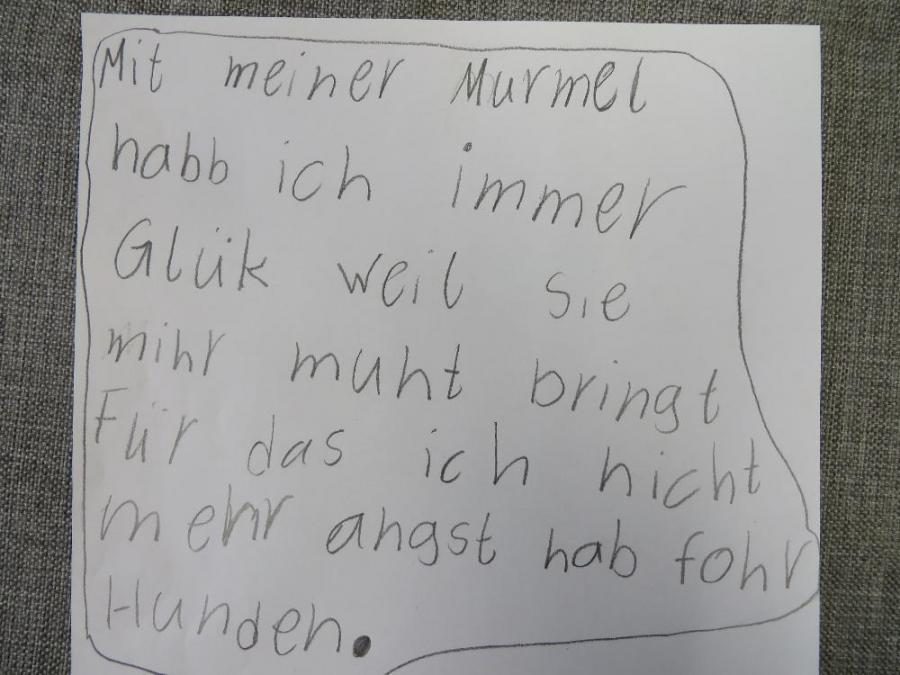 Mit meiner Murmel
habb ich immer
Glük weil sie
mihr muht bringt
Für das ich nicht
mehr angst hab fohr
Hunden.